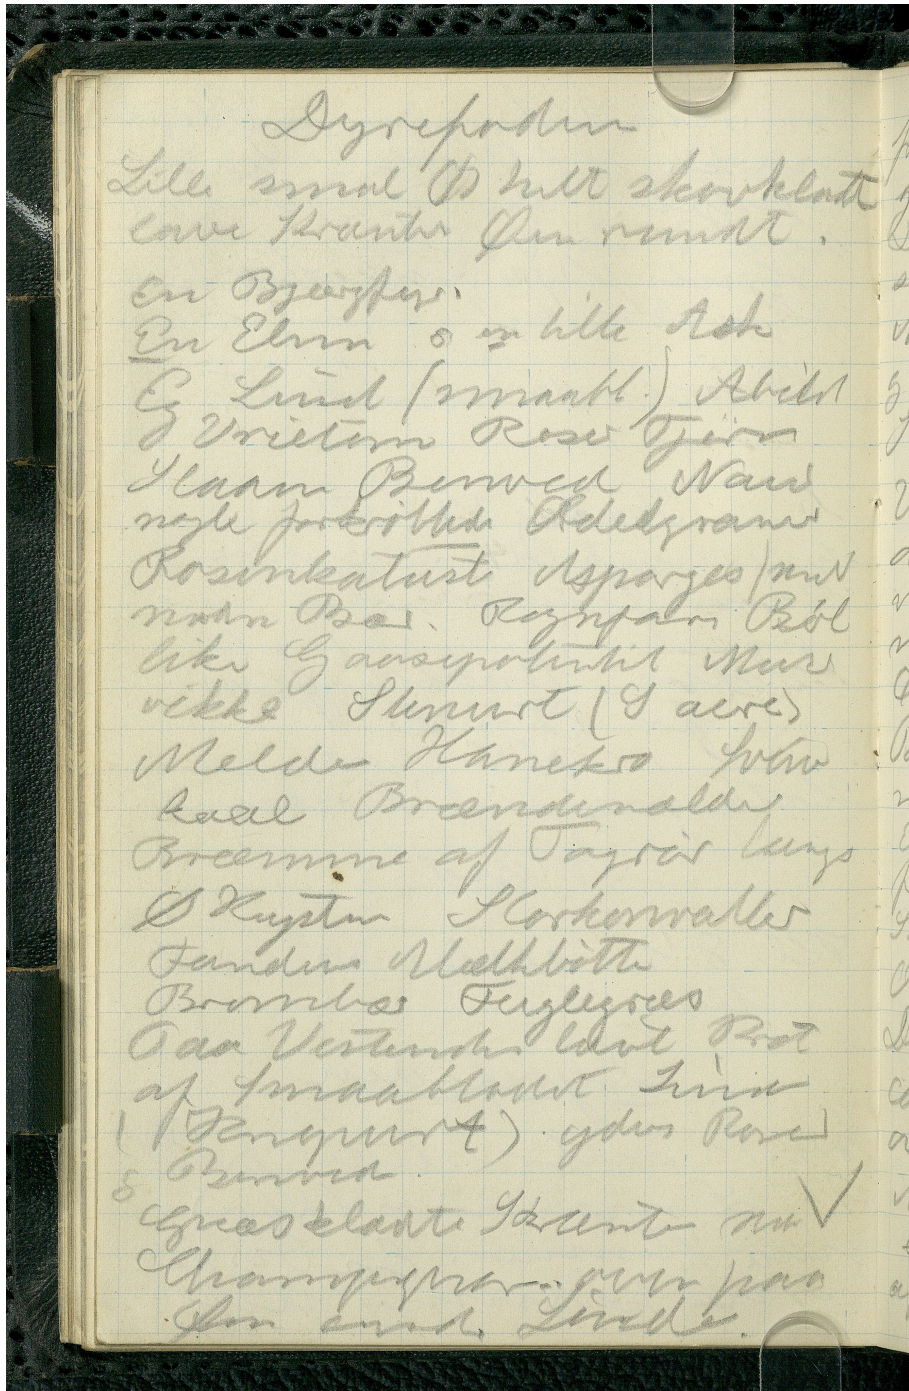 Dyrefoden
Lille smal Ø helt skovklædt
lave Skrænter Øen rundt.
En Bjergfyr.
En Elm & en lille Ask
Eg Lind (smaabl.) Abild
Vrietorn Roser Tjørn
Slaaen Benved Navr
nogle forkrøblede Ædelgraner
Rosenkattost Asparges (med
røde Bær. Rejnfan Røl
like Gaasepotentil Muse
vikke Stenurt (S acre)
Melde Hanekro Svine
kaal Brændenælder
Bræmme af Tagrør langs
S Kysten Skorkonvaller
Fandens Mælkbøtte
Brombær Fuglegræs
Paa Vestenden lavt Krat
af Smaabladet Lind
(Knopurt) ydre Roser
& Benved
Græsklædte Skrænter med
Champignon. oven paa
Øen Linde.